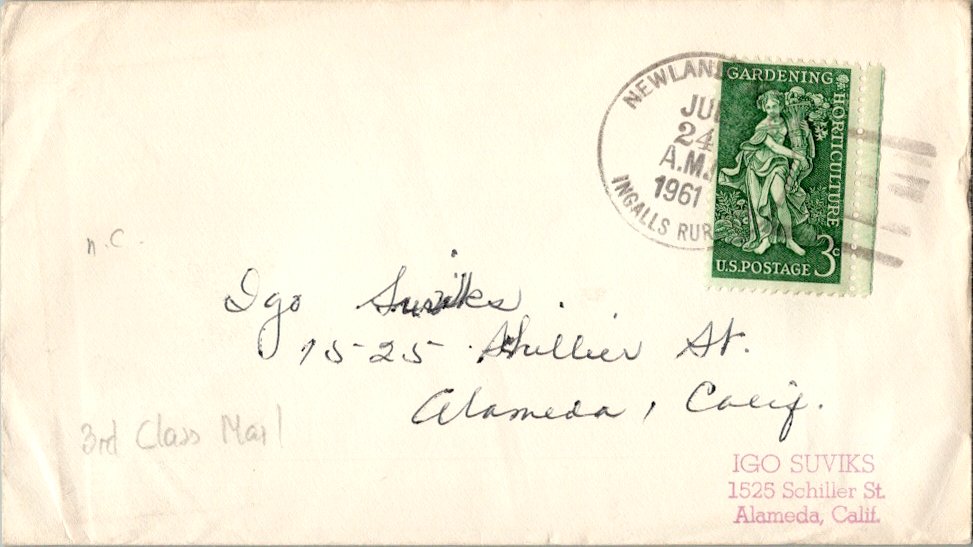 NEWLAN
JUL
24
A.M.
1961
INGALLS RUR
GARDENING
HORTICULTURE
U.S.POSTAGE 3c
n.C.
Igo Suviks.
1525 Shillier St.
Alameda, Calif.
3rd Class Mail
IGO SUVIKS
1525 Schiller St.
Alameda, Calif.